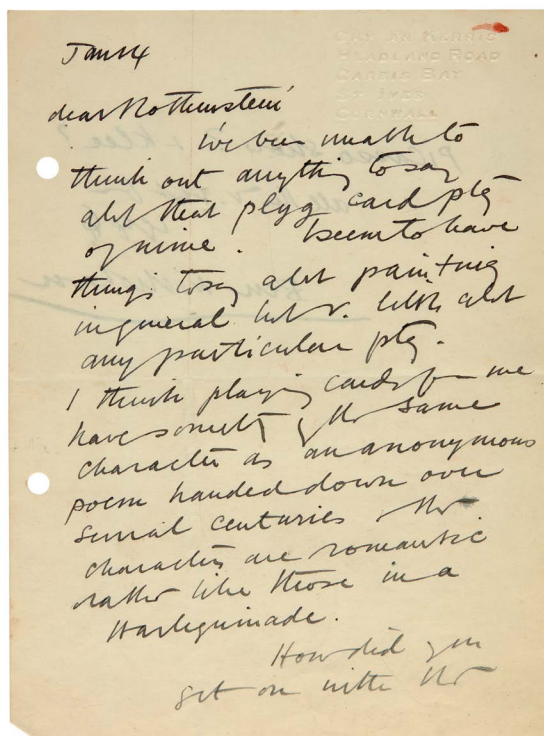 CHY AN KERRIS
HEADLAND ROAD
CARBIS BAY
ST IVES
CORNWALL
Jan 14
dear Rothenstein
I've been unable to
think out anything to say
abt that playg card ptg
of mine. I seem to have
things to say abt painting
in general but v. little abt
any particular ptg.
I think playing cards for me
have somethg of the same
character as an anonymous
poem handed down over
several centuries the
characters are romantic
rather like those in a
Harlequinade.
How did you
get on with the